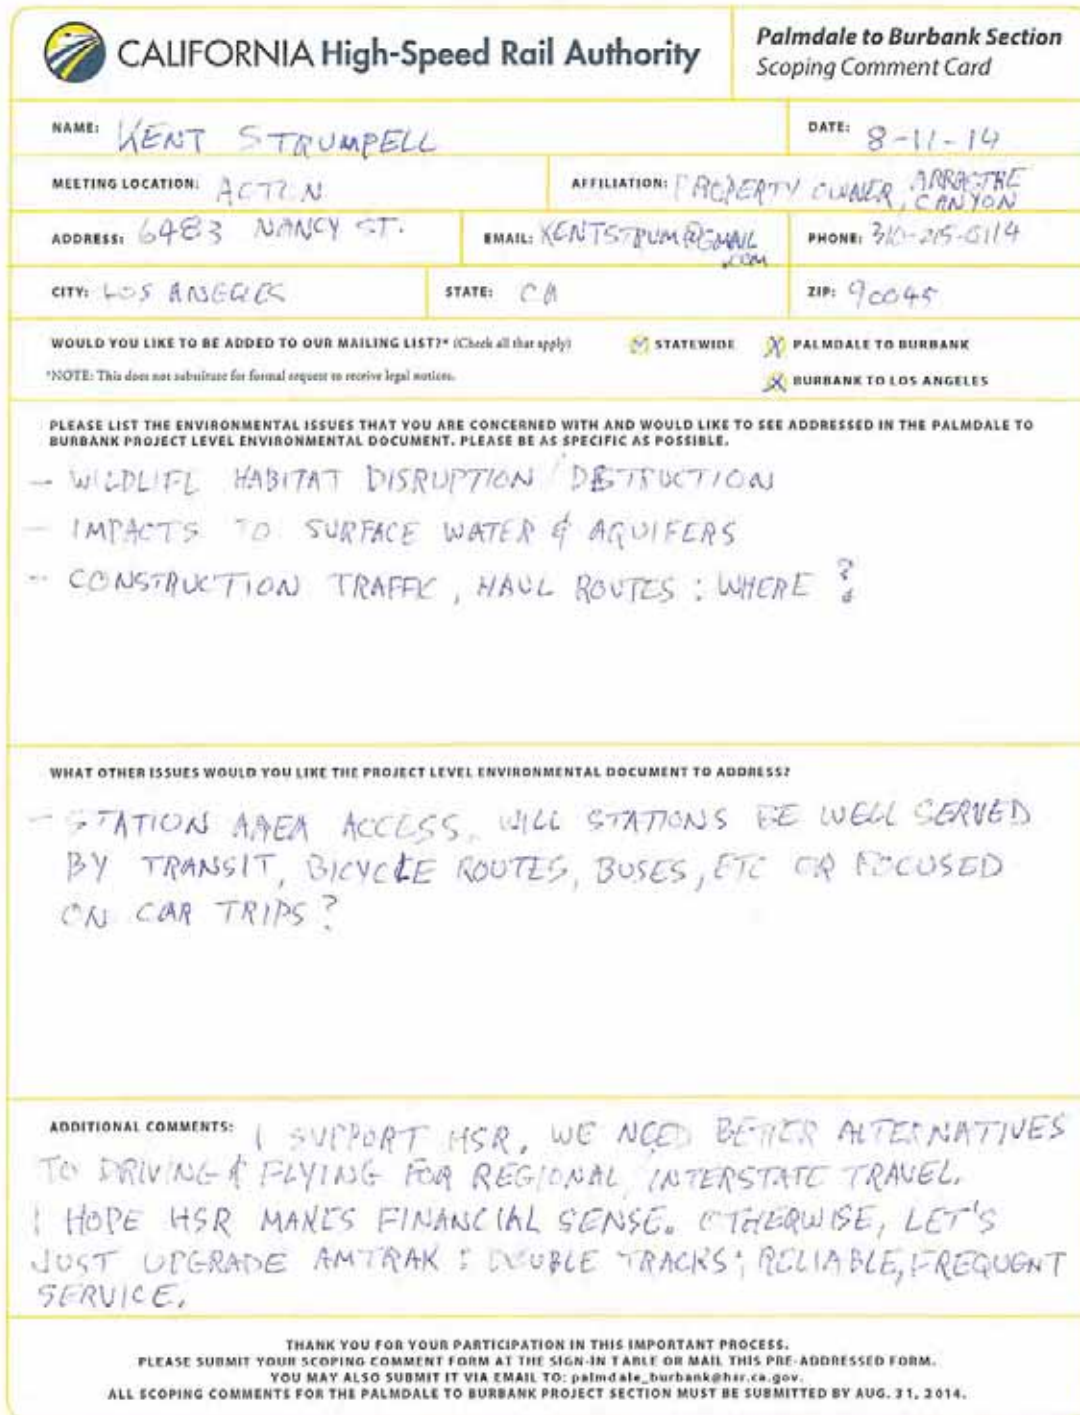 CALIFORNIA High-Speed Rail Authority
Palmdale to Burbank Section
Scoping Comment Card
NAME: KENT STRUMPELL
DATE: 8-11-14
MEETING LOCATION: ACTON
AFFILIATION: PROPERTY OWNER, ARRASTRE CANYON
ADDRESS: 6483 NANCY ST.
EMAIL: KENTSTRUM@GMAIL.COM
PHONE: 310-215-0114
CITY: LOS ANGELES
STATE: CA
ZIP: 90045
WOULD YOU LIKE TO BE ADDED TO OUR MAILING LIST?* (Check all that apply)
STATEWIDE
PALMDALE TO BURBANK
*NOTE: This does not substitute for formal request to receive legal notices.
BURBANK TO LOS ANGELES
PLEASE LIST THE ENVIRONMENTAL ISSUES THAT YOU ARE CONCERNED WITH AND WOULD LIKE TO SEE ADDRESSED IN THE PALMDALE TO
BURBANK PROJECT LEVEL ENVIRONMENTAL DOCUMENT. PLEASE BE AS SPECIFIC AS POSSIBLE.
- WILDLIFE HABITAT DISRUPTION / DESTRUCTION
- IMPACTS TO SURFACE WATER & AQUIFERS
- CONSTRUCTION TRAFFIC, HAUL ROUTES: WHERE?
WHAT OTHER ISSUES WOULD YOU LIKE THE PROJECT LEVEL ENVIRONMENTAL DOCUMENT TO ADDRESS?
- STATION AREA ACCESS. WILL STATIONS BE WELL SERVED
BY TRANSIT, BICYCLE ROUTES, BUSES, ETC OR FOCUSED
ON CAR TRIPS?
ADDITIONAL COMMENTS: I SUPPORT HSR. WE NEED BETTER ALTERNATIVES
TO DRIVING & FLYING FOR REGIONAL, INTERSTATE TRAVEL.
I HOPE HSR MAKES FINANCIAL SENSE. OTHERWISE, LET'S
JUST UPGRADE AMTRAK: DOUBLE TRACKS; RELIABLE, FREQUENT
SERVICE.
THANK YOU FOR YOUR PARTICIPATION IN THIS IMPORTANT PROCESS.
PLEASE SUBMIT YOUR SCOPING COMMENT FORM AT THE SIGN-IN TABLE OR MAIL THIS PRE-ADDRESSED FORM.
YOU MAY ALSO SUBMIT IT VIA EMAIL TO: palmdale_burbank@hsr.ca.gov.
ALL SCOPING COMMENTS FOR THE PALMDALE TO BURBANK PROJECT SECTION MUST BE SUBMITTED BY AUG. 31, 2014.